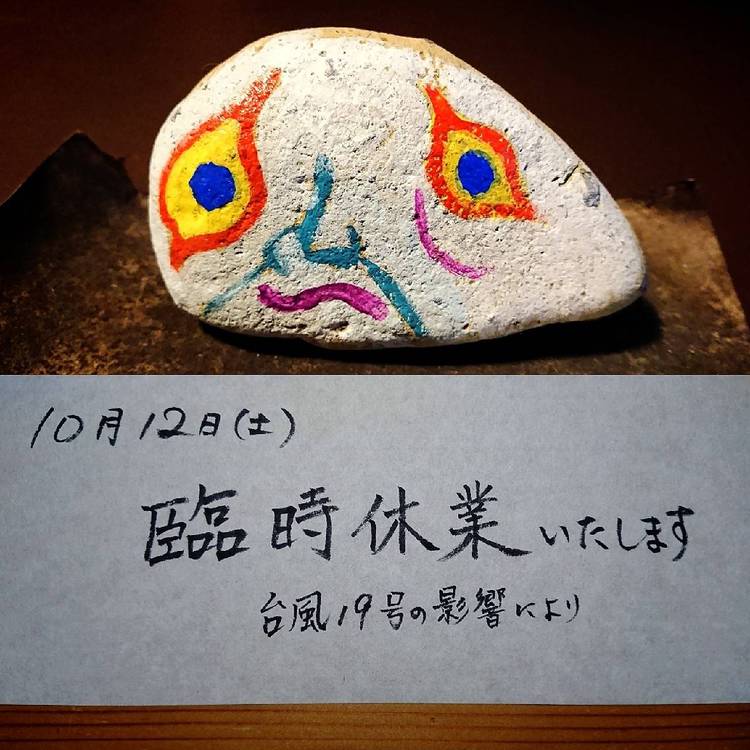 10月12日(土)
臨時休業いたします
台風19号の影響により